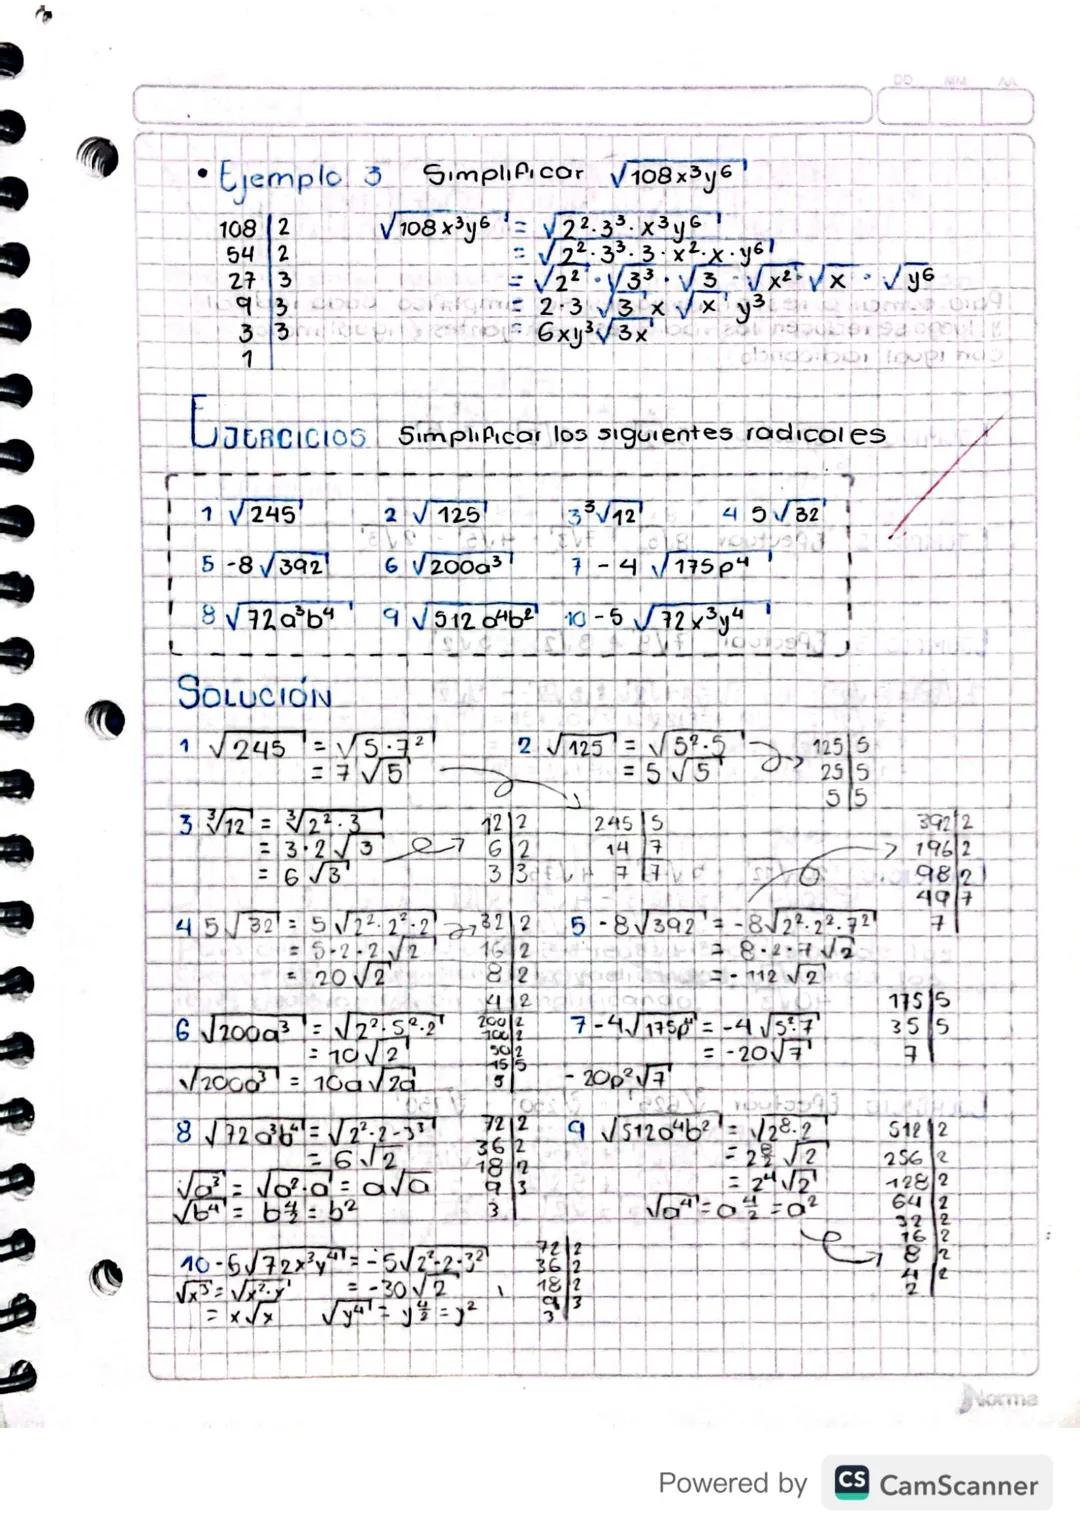 • Ejemplo 3 Simplificar √108x³y⁶
108 | 2 √108x³y⁶ = √2²·3³·x³y⁶
54 | 2 = √2²·3³·3·x²·x·y⁶
27 | 3 = √2² · √3³ · √3 · √x² · √x · √y⁶
9 | 3 = 2·3 √3 x √x y³
3 | 3 = 6xy³√3x
1
EJERCICIOS Simplificar los siguientes radicales
1 √245 2 √125 3 ³√12 4 5√32
5 -8√392 6 √200a³ 7 -4√175p⁴
8 √72a³b⁴ 9 √512a⁴b² 10 -5√72x³y⁴
SOLUCIÓN
1 √245 = √5·7²
= 7√5
2 √125 = √5²·5
= 5√5
125 | 5
25 | 5
5 | 5
3 ³√12 = ³√2²·3
= 3·2√3
= 6√3
12 | 2
6 | 2
3 | 3
245 | 5
14 | 7
7 | 7
392 | 2
196 | 2
98 | 2
49 | 7
7
4 5√32 = 5√2²·2²·2
= 5·2·2√2
= 20√2
32 | 2
16 | 2
8 | 2
4 | 2
5 -8√392 = -8√2²·2²·7²
= -8·2·7√2
= -112√2
6 √200a³ = √2²·5²·2
= 10√2
√200a³ = 10a√2a
200 | 2
100 | 2
50 | 2
15 | 5
5
7 -4√175p⁴ = -4√5²·7
= -20√7
-20p²√7
175 | 5
35 | 5
7
8 √72a³b⁴ = √2²·2·3³
= 6√2
√a³ = √a²·a = a√a
√b⁴ = b⁴⁄₂ = b²
72 | 2
36 | 2
18 | 2
9 | 3
3
9 √512a⁴b² = √2⁸·2
= 2⁸⁄₂ √2
= 2⁴√2
√a⁴ = a⁴⁄₂ = a²
512 | 2
256 | 2
128 | 2
64 | 2
32 | 2
16 | 2
8 | 2
4 | 2
2
10 -5√72x³y⁴ = -5√2²·2·3²
√x³ = √x²·x = -30√2
= x√x √y⁴ = y⁴⁄₂ = y²
72 | 2
36 | 2
18 | 2
9 | 3
3
Norma
Powered by CS CamScanner